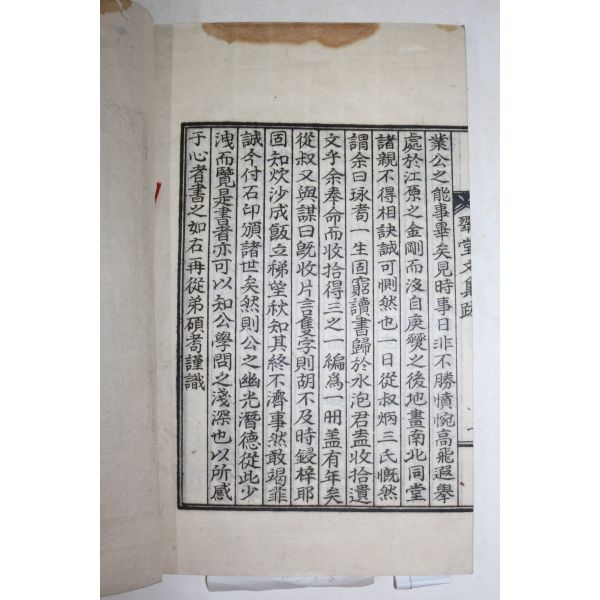 業公之能事畢矣見時事日非不勝憤惋高飛遐擧
處於江原之金剛而沒自庚燹之後地畫南北同堂
諸親不得相訣誠可惻然也一日從叔炳三氏慨然
謂余曰琢耉一生固窮讀書歸於水泡君盍收拾遺
文乎余奉命而收拾得三之一編爲一冊盖有年矣
從叔又與謀曰旣收片言隻字則胡不及時鋟梓耶
固知炊沙成飯立稊望秋知其終不濟事然敢竭菲
誠今付石印頒諸世矣然則公之幽光潛德從此少
洩而覽是書者亦可以知公學問之淺深也以所感
于心者書之如右再從弟碩耉謹識
堂文集跋
一